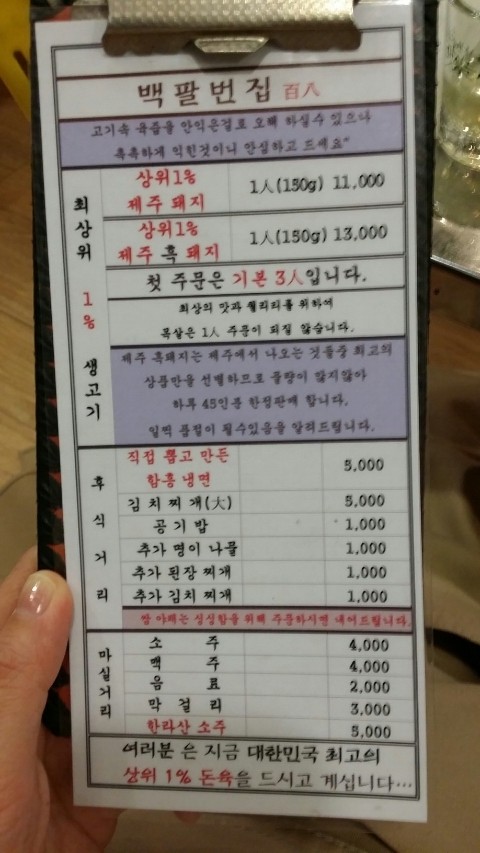 백팔번집 百八
고기속 육즙을 안익은걸로 오해 하실수 있으나
촉촉하게 익힌것이니 안심하고 드세요"
최상위 1% 생고기
상위1%
제주 돼지
1人(150g) 11,000
상위1%
제주 흑 돼지
1人(150g) 13,000
첫 주문은 기본 3人입니다.
최상의 맛과 퀄리티를 위하여
목살은 1人 주문이 되질 않습니다.
제주 흑돼지는 제주에서 나오는 것들중 최고의
상품만을 선별하므로 물량이 많지않아
하루 45인분 한정판매 합니다.
일찍 품절이 될수있음을 알려드립니다.
후식거리
직접 뽑고 만든
함흥냉면
5,000
김치찌개(大) 5,000
공기밥 1,000
추가 명이 나물 1,000
추가 된장 찌개 1,000
추가 김치 찌개 1,000
쌈 야채는 싱싱함을 위해 주문하시면 내어드립니다.
마실거리
소 주 4,000
맥 주 4,000
음 료 2,000
막 걸 리 3,000
한라산 소주 5,000
여러분 은 지금 대한민국 최고의
상위 1% 돈육을 드시고 계십니다...